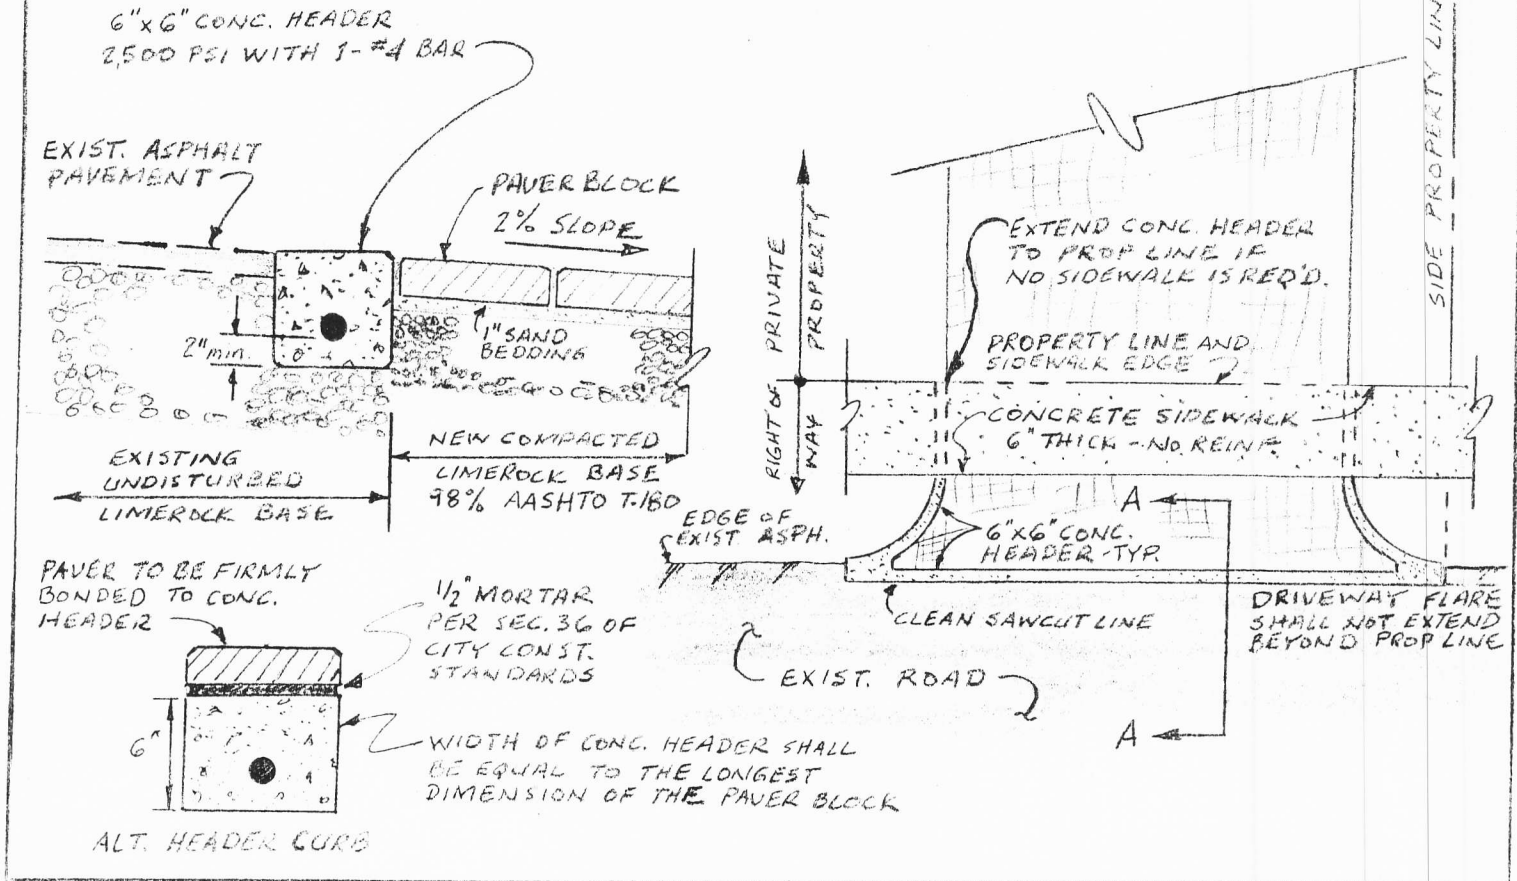 6"x6" CONC. HEADER
2,500 PSI WITH 1-#4 BAR
EXIST. ASPHALT
PAVEMENT
PAVER BLOCK
2% SLOPE
2" min.
1" SAND
BEDDING
NEW COMPACTED
LIMEROCK BASE
98% AASHTO T-180
EXISTING
UNDISTURBED
LIMEROCK BASE
PAVER TO BE FIRMLY
BONDED TO CONC.
HEADER
1/2" MORTAR
PER SEC. 36 OF
CITY CONST.
STANDARDS
6"
WIDTH OF CONC. HEADER SHALL
BE EQUAL TO THE LONGEST
DIMENSION OF THE PAVER BLOCK
ALT. HEADER CURB
SIDE PROPERTY LIN
PRIVATE
PROPERTY
RIGHT OF
WAY
EXTEND CONC. HEADER
TO PROP LINE IF
NO SIDEWALK IS REQ'D.
PROPERTY LINE AND
SIDEWALK EDGE
CONCRETE SIDEWALK
6" THICK - NO REINF
A
EDGE OF
EXIST. ASPH.
6"x6" CONC.
HEADER-TYP.
CLEAN SAWCUT LINE
DRIVEWAY FLARE
SHALL NOT EXTEND
BEYOND PROP LINE
EXIST. ROAD
A